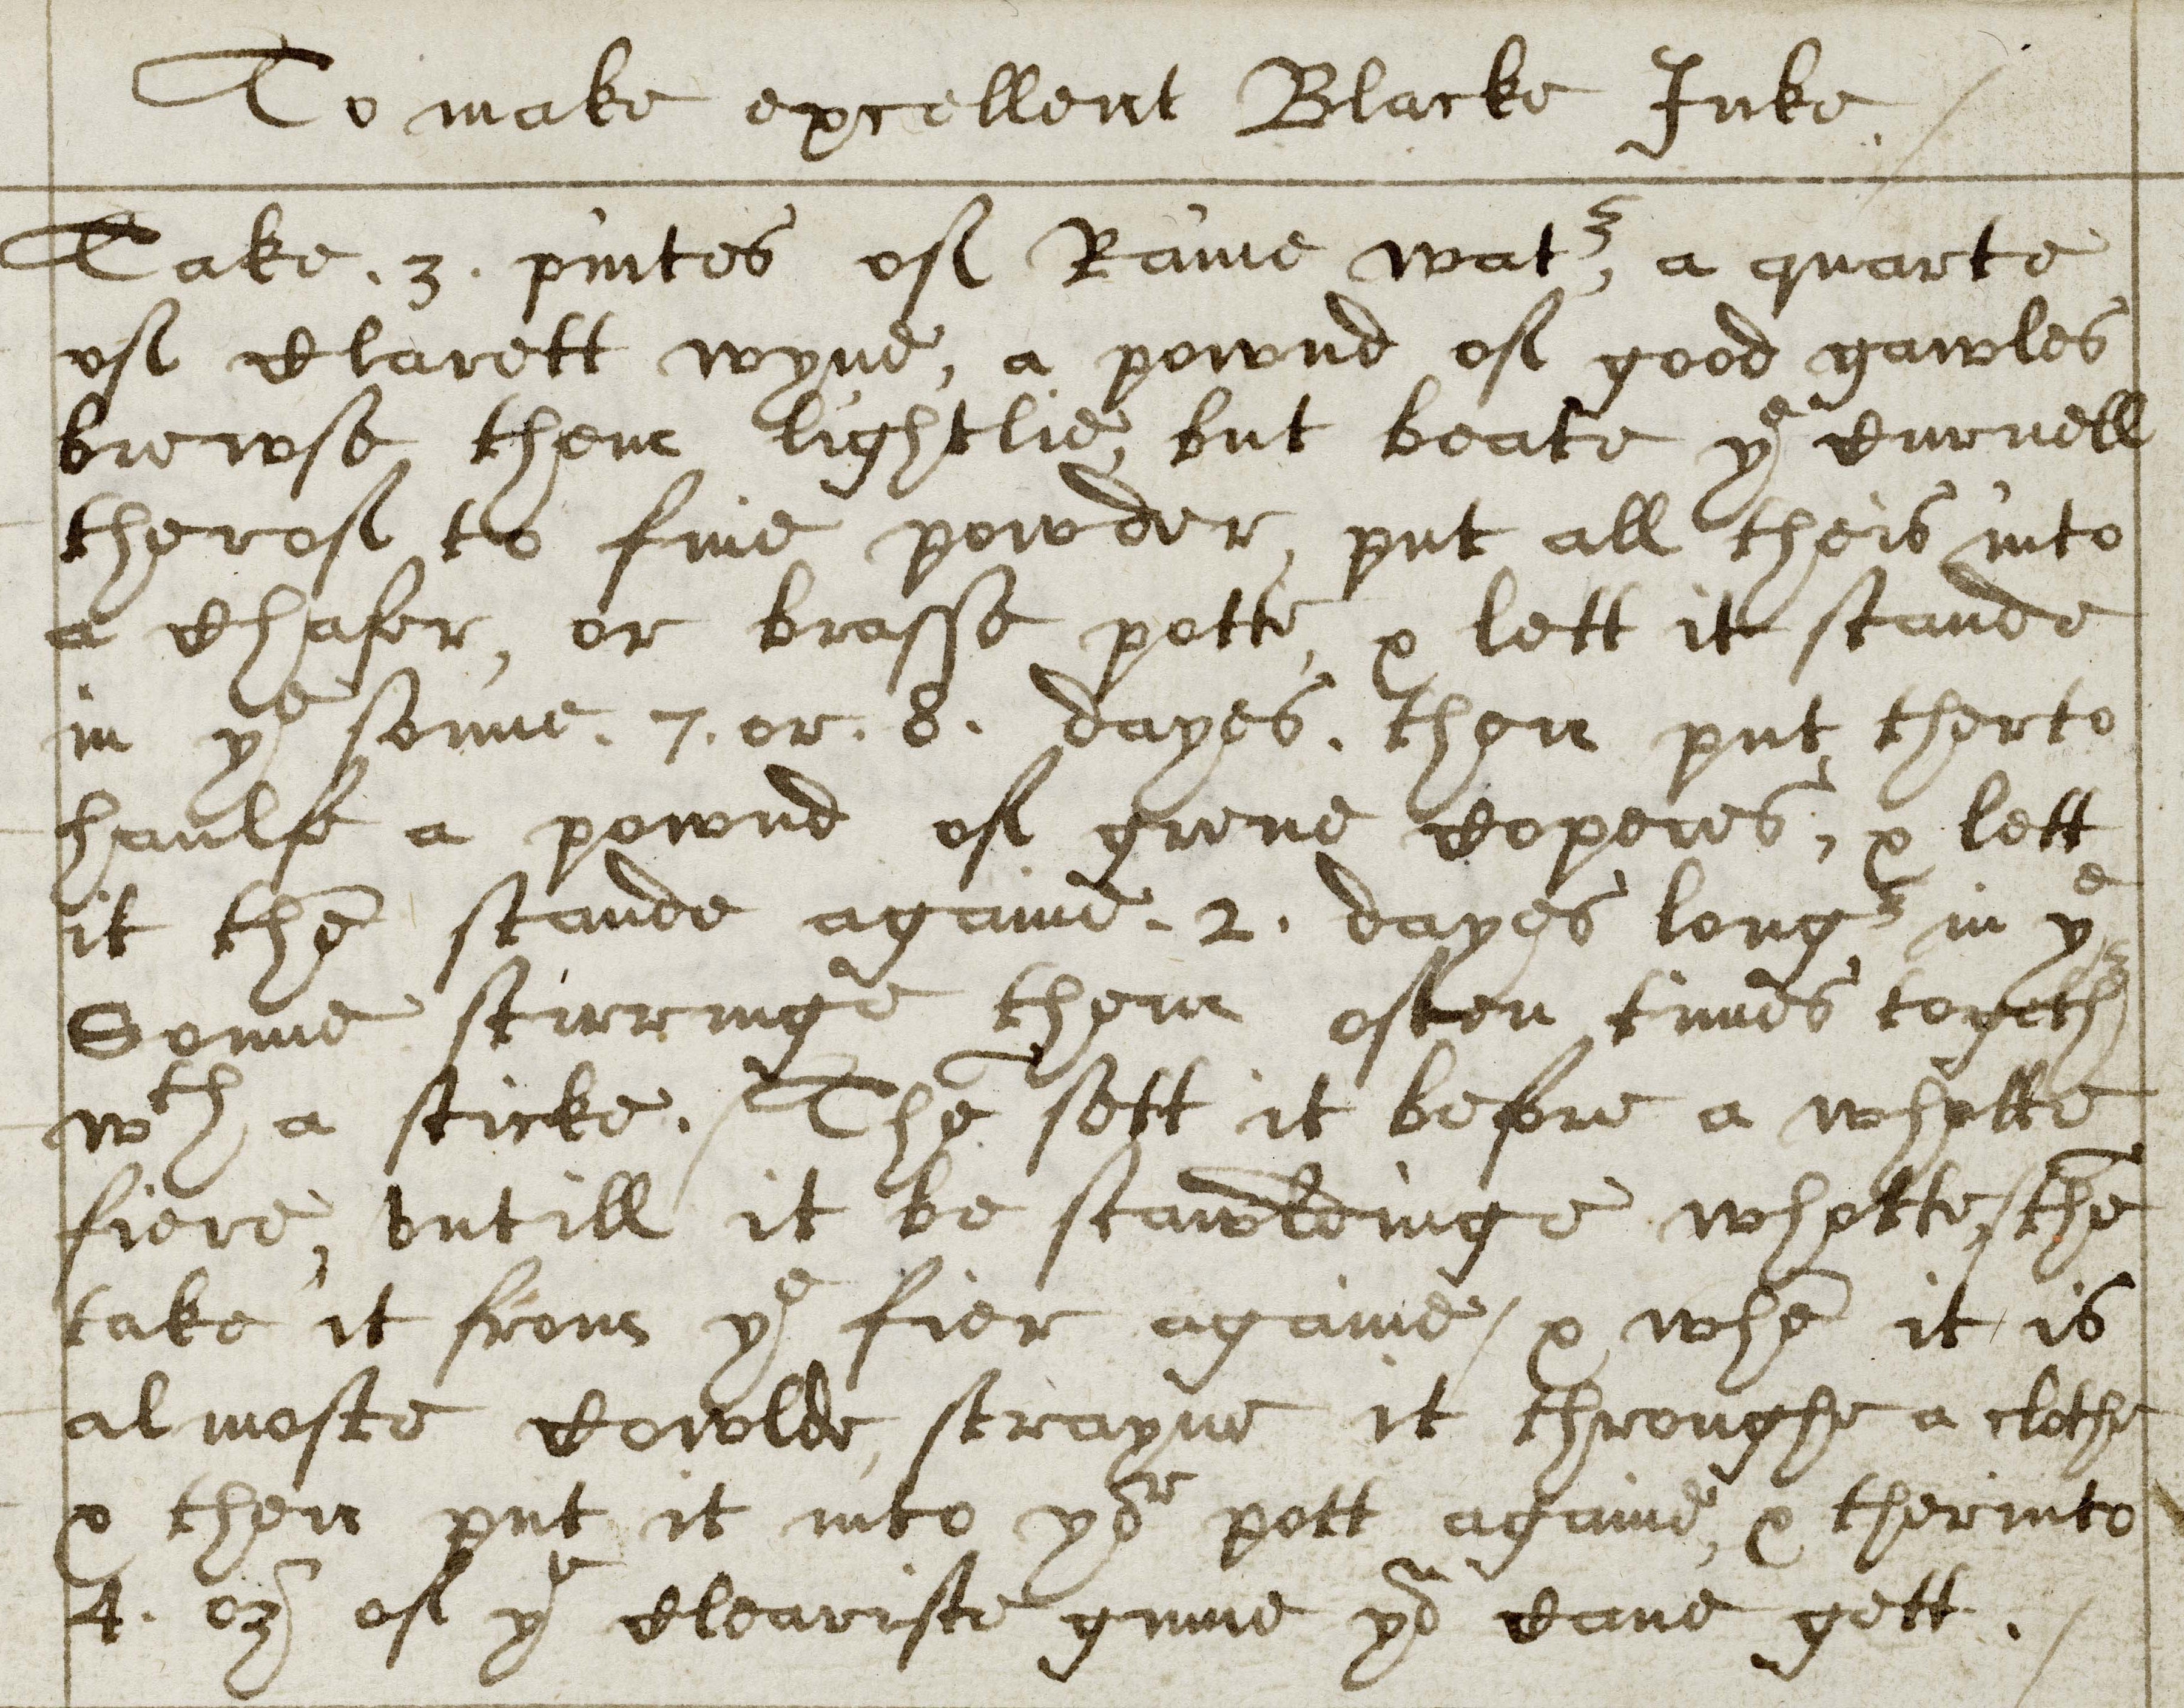 To make excellent Blacke Inke./
Take .3. pintes of Raine watr, a quarte
of Clarett wyne, a pownd of good gawles
brewse them lightlie, but beate ye Curnell
therof to fine powder, put all theis into
a Chafer, or brasse potte, & lett it stande
in ye sonne .7. or .8. dayes. then put therto
haulfe a pownd of grene Coperes, & lett
it thē stande againe .2. dayes longr in ye
Sonne stirringe them often times togethr
wth a sticke. / Thē sett it before a whotte
fiere, vntill it be scawldinge whotte, / thē
take it from ye fier againe / & whē it is
almoste Cowlde, strayne it throughe a clothe
& then put it into yor pott againe, & therinto
4. oz of ye Cleariste gume yo Cane gett. /